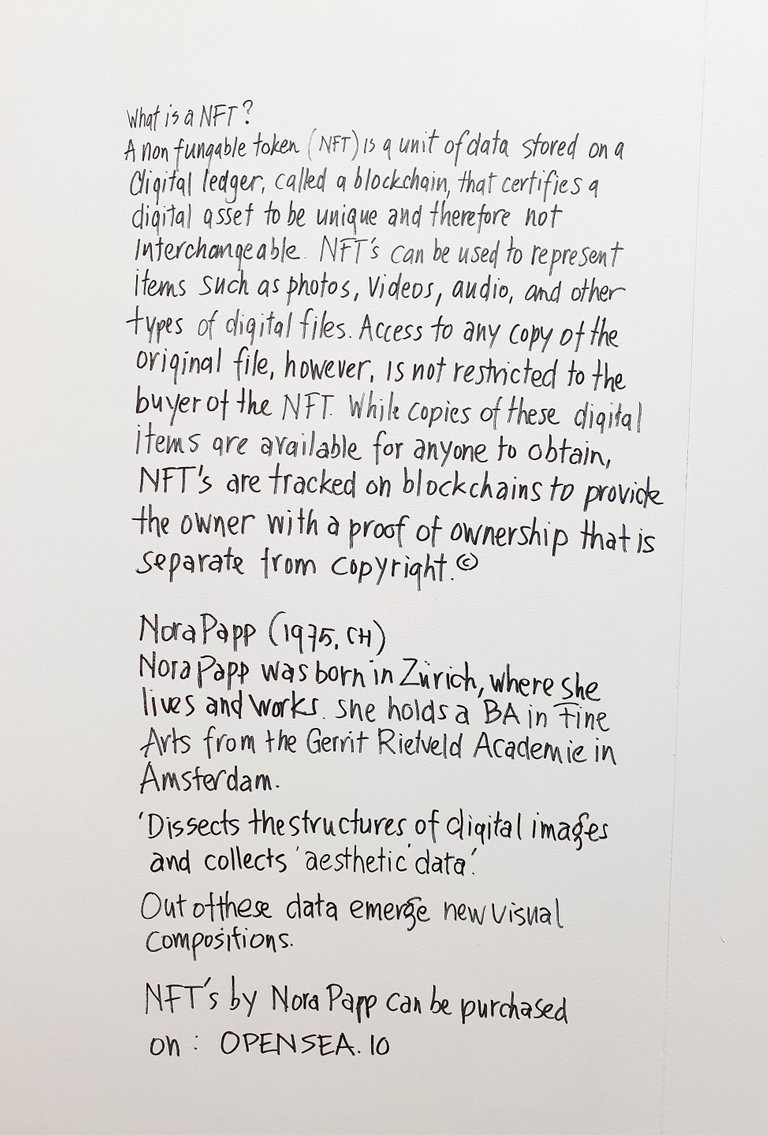 What is a NFT?
A non fungable token (NFT) is a unit of data stored on a
digital ledger, called a blockchain, that certifies a
digital asset to be unique and therefore not
interchangeable. NFT's can be used to represent
items such as photos, videos, audio, and other
types of digital files. Access to any copy of the
original file, however, is not restricted to the
buyer of the NFT. While copies of these digital
items are available for anyone to obtain,
NFT's are tracked on blockchains to provide
the owner with a proof of ownership that is
separate from copyright.©
Nora Papp (1975, CH)
Nora Papp was born in Zürich, where she
lives and works. She holds a BA in Fine
Arts from the Gerrit Rietveld Academie in
Amsterdam.
'Dissects the structures of digital images
and collects 'aesthetic' data'.
Out of these data emerge new visual
compositions.
NFT's by Nora Papp can be purchased
on: OPENSEA.IO